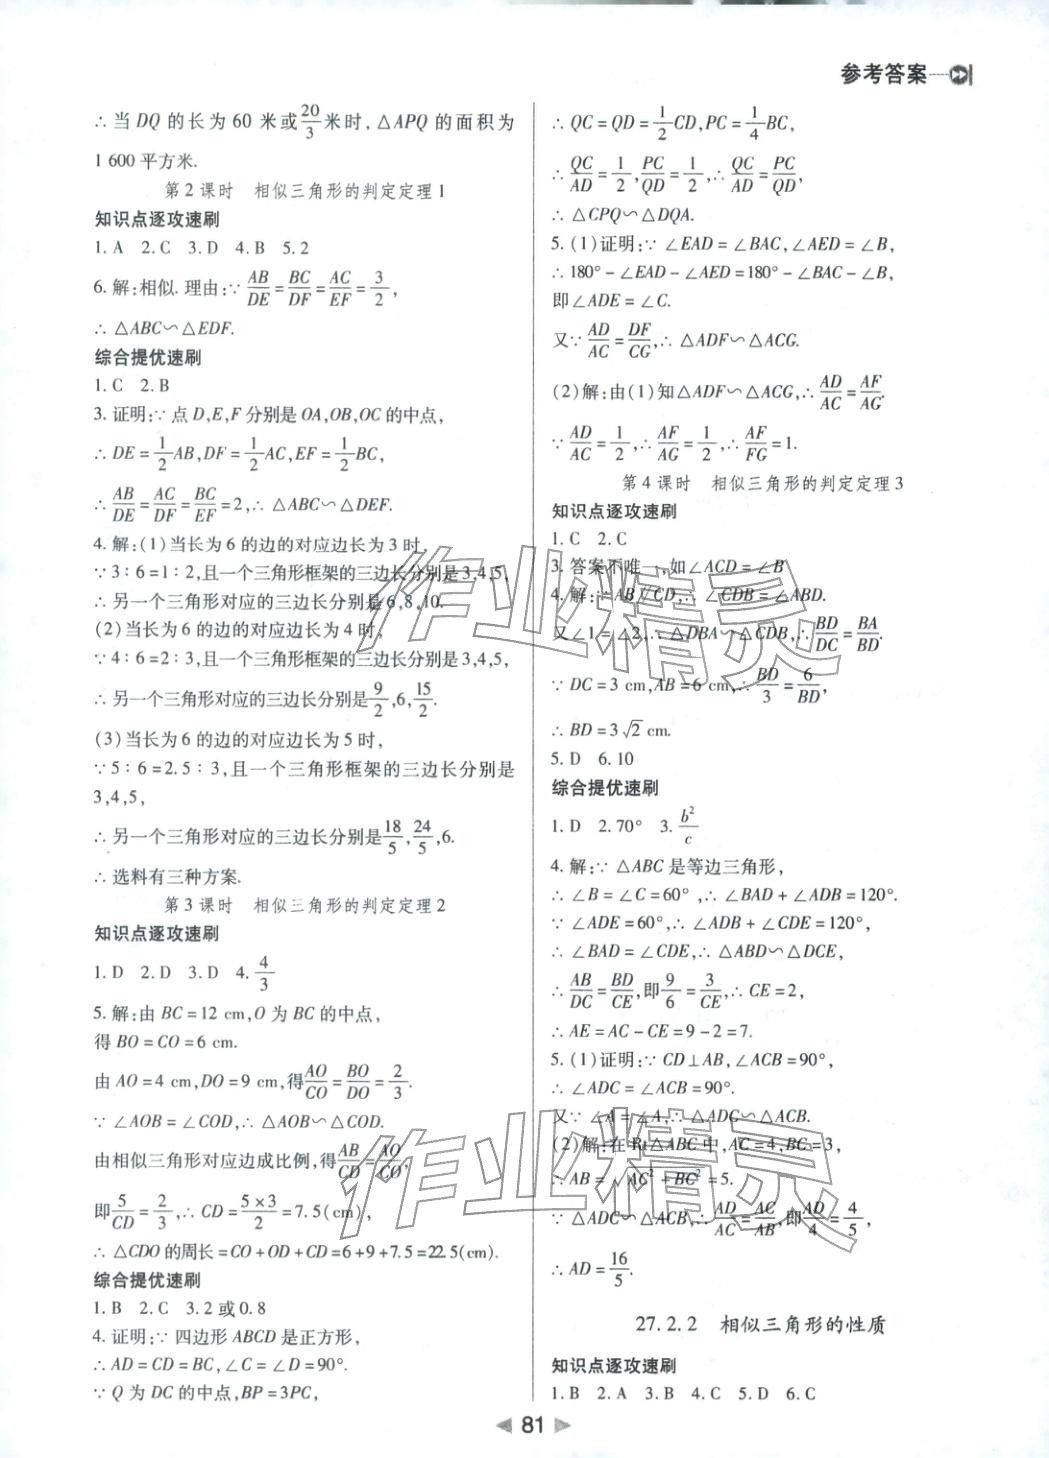 参考答案
∴当DQ的长为60米或20/3米时,△APQ的面积为
1 600平方米.
第2课时　相似三角形的判定定理1
知识点逐攻速刷
1. A　2. C　3. D　4. B　5. 2
6. 解:相似. 理由:∵AB/DE=BC/DF=AC/EF=3/2,
∴△ABC∽△EDF.
综合提优速刷
1. C　2. B
3. 证明:∵点D,E,F分别是OA,OB,OC的中点,
∴DE=1/2AB,DF=1/2AC,EF=1/2BC,
∴AB/DE=AC/DF=BC/EF=2,∴△ABC∽△DEF.
4. 解:(1)当长为6的边的对应边长为3时,
∵3∶6=1∶2,且一个三角形框架的三边长分别是3,4,5,
∴另一个三角形对应的三边长分别是6,8,10.
(2)当长为6的边的对应边长为4时,
∵4∶6=2∶3,且一个三角形框架的三边长分别是3,4,5,
∴另一个三角形对应的三边长分别是9/2,6,15/2.
(3)当长为6的边的对应边长为5时,
∵5∶6=2.5∶3,且一个三角形框架的三边长分别是
3,4,5,
∴另一个三角形对应的三边长分别是18/5,24/5,6.
∴选料有三种方案.
第3课时　相似三角形的判定定理2
知识点逐攻速刷
1. D　2. D　3. D　4. 4/3
5. 解:由BC=12 cm,O为BC的中点,
得BO=CO=6 cm.
由AO=4 cm,DO=9 cm,得AO/CO=BO/DO=2/3.
∵∠AOB=∠COD,∴△AOB∽△COD.
由相似三角形对应边成比例,得AB/CD=AO/CO,
即5/CD=2/3,∴CD=5×3/2=7.5(cm),
∴△CDO的周长=CO+OD+CD=6+9+7.5=22.5(cm).
综合提优速刷
1. B　2. C　3. 2或0.8
4. 证明:∵四边形ABCD是正方形,
∴AD=CD=BC,∠C=∠D=90°.
∵Q为DC的中点,BP=3PC,
∴QC=QD=1/2CD,PC=1/4BC,
∴QC/AD=1/2,PC/QD=1/2,∴QC/AD=PC/QD,
∴△CPQ∽△DQA.
5. (1)证明:∵∠EAD=∠BAC,∠AED=∠B,
∴180°-∠EAD-∠AED=180°-∠BAC-∠B,
即∠ADE=∠C.
又∵AD/AC=DF/CG,∴△ADF∽△ACG.
(2)解:由(1)知△ADF∽△ACG,∴AD/AC=AF/AG.
∵AD/AC=1/2,∴AF/AG=1/2,∴AF/FG=1.
第4课时　相似三角形的判定定理3
知识点逐攻速刷
1. C　2. C
3. 答案不唯一,如∠ACD=∠B
4. 解:∵AB∥CD,∴∠CDB=∠ABD.
又∠1=∠2,∴△DBA∽△CDB,∴BD/DC=BA/BD.
∵DC=3 cm,AB=6 cm,∴BD/3=6/BD,
∴BD=3√2 cm.
5. D　6. 10
综合提优速刷
1. D　2. 70°　3. b²/c
4. 解:∵△ABC是等边三角形,
∴∠B=∠C=60°,∴∠BAD+∠ADB=120°.
∵∠ADE=60°,∴∠ADB+∠CDE=120°,
∴∠BAD=∠CDE,∴△ABD∽△DCE,
∴AB/DC=BD/CE,即9/6=3/CE,∴CE=2,
∴AE=AC-CE=9-2=7.
5. (1)证明:∵CD⊥AB,∠ACB=90°,
∴∠ADC=∠ACB=90°.
又∵∠A=∠A,∴△ADC∽△ACB.
(2)解:在Rt△ABC中,AC=4,BC=3,
∴AB=√AC²+BC²=5.
∵△ADC∽△ACB,∴AD/AC=AC/AB,即AD/4=4/5,
∴AD=16/5.
27.2.2　相似三角形的性质
知识点逐攻速刷
1. B　2. A　3. B　4. C　5. D　6. C
81
作业精灵
作业精灵